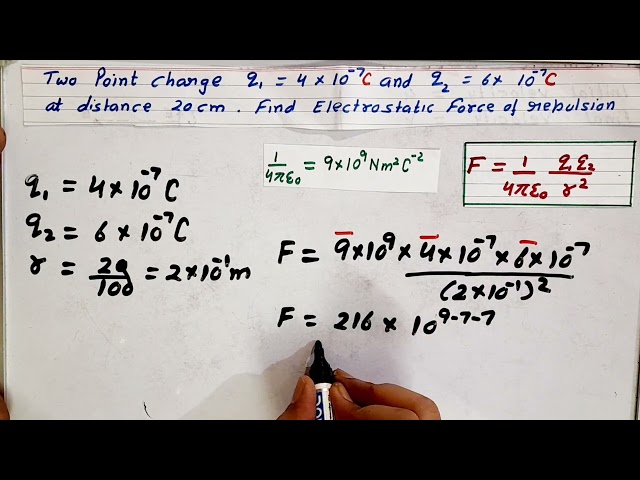 Two Point charge q₁ = 4 × 10⁻⁷C and q₂ = 6 × 10⁻⁷C
at distance 20 cm . Find Electrostatic Force of repulsion
1/4πε₀ = 9×10⁹ Nm²C⁻²
F = 1/4πε₀ q₁q₂/r²
q₁ = 4×10⁻⁷C
q₂ = 6×10⁻⁷C
r = 20/100 = 2×10⁻¹m
F = 9×10⁹×4×10⁻⁷×6×10⁻⁷/(2×10⁻¹)²
F = 216 × 10⁹⁻⁷⁻⁷